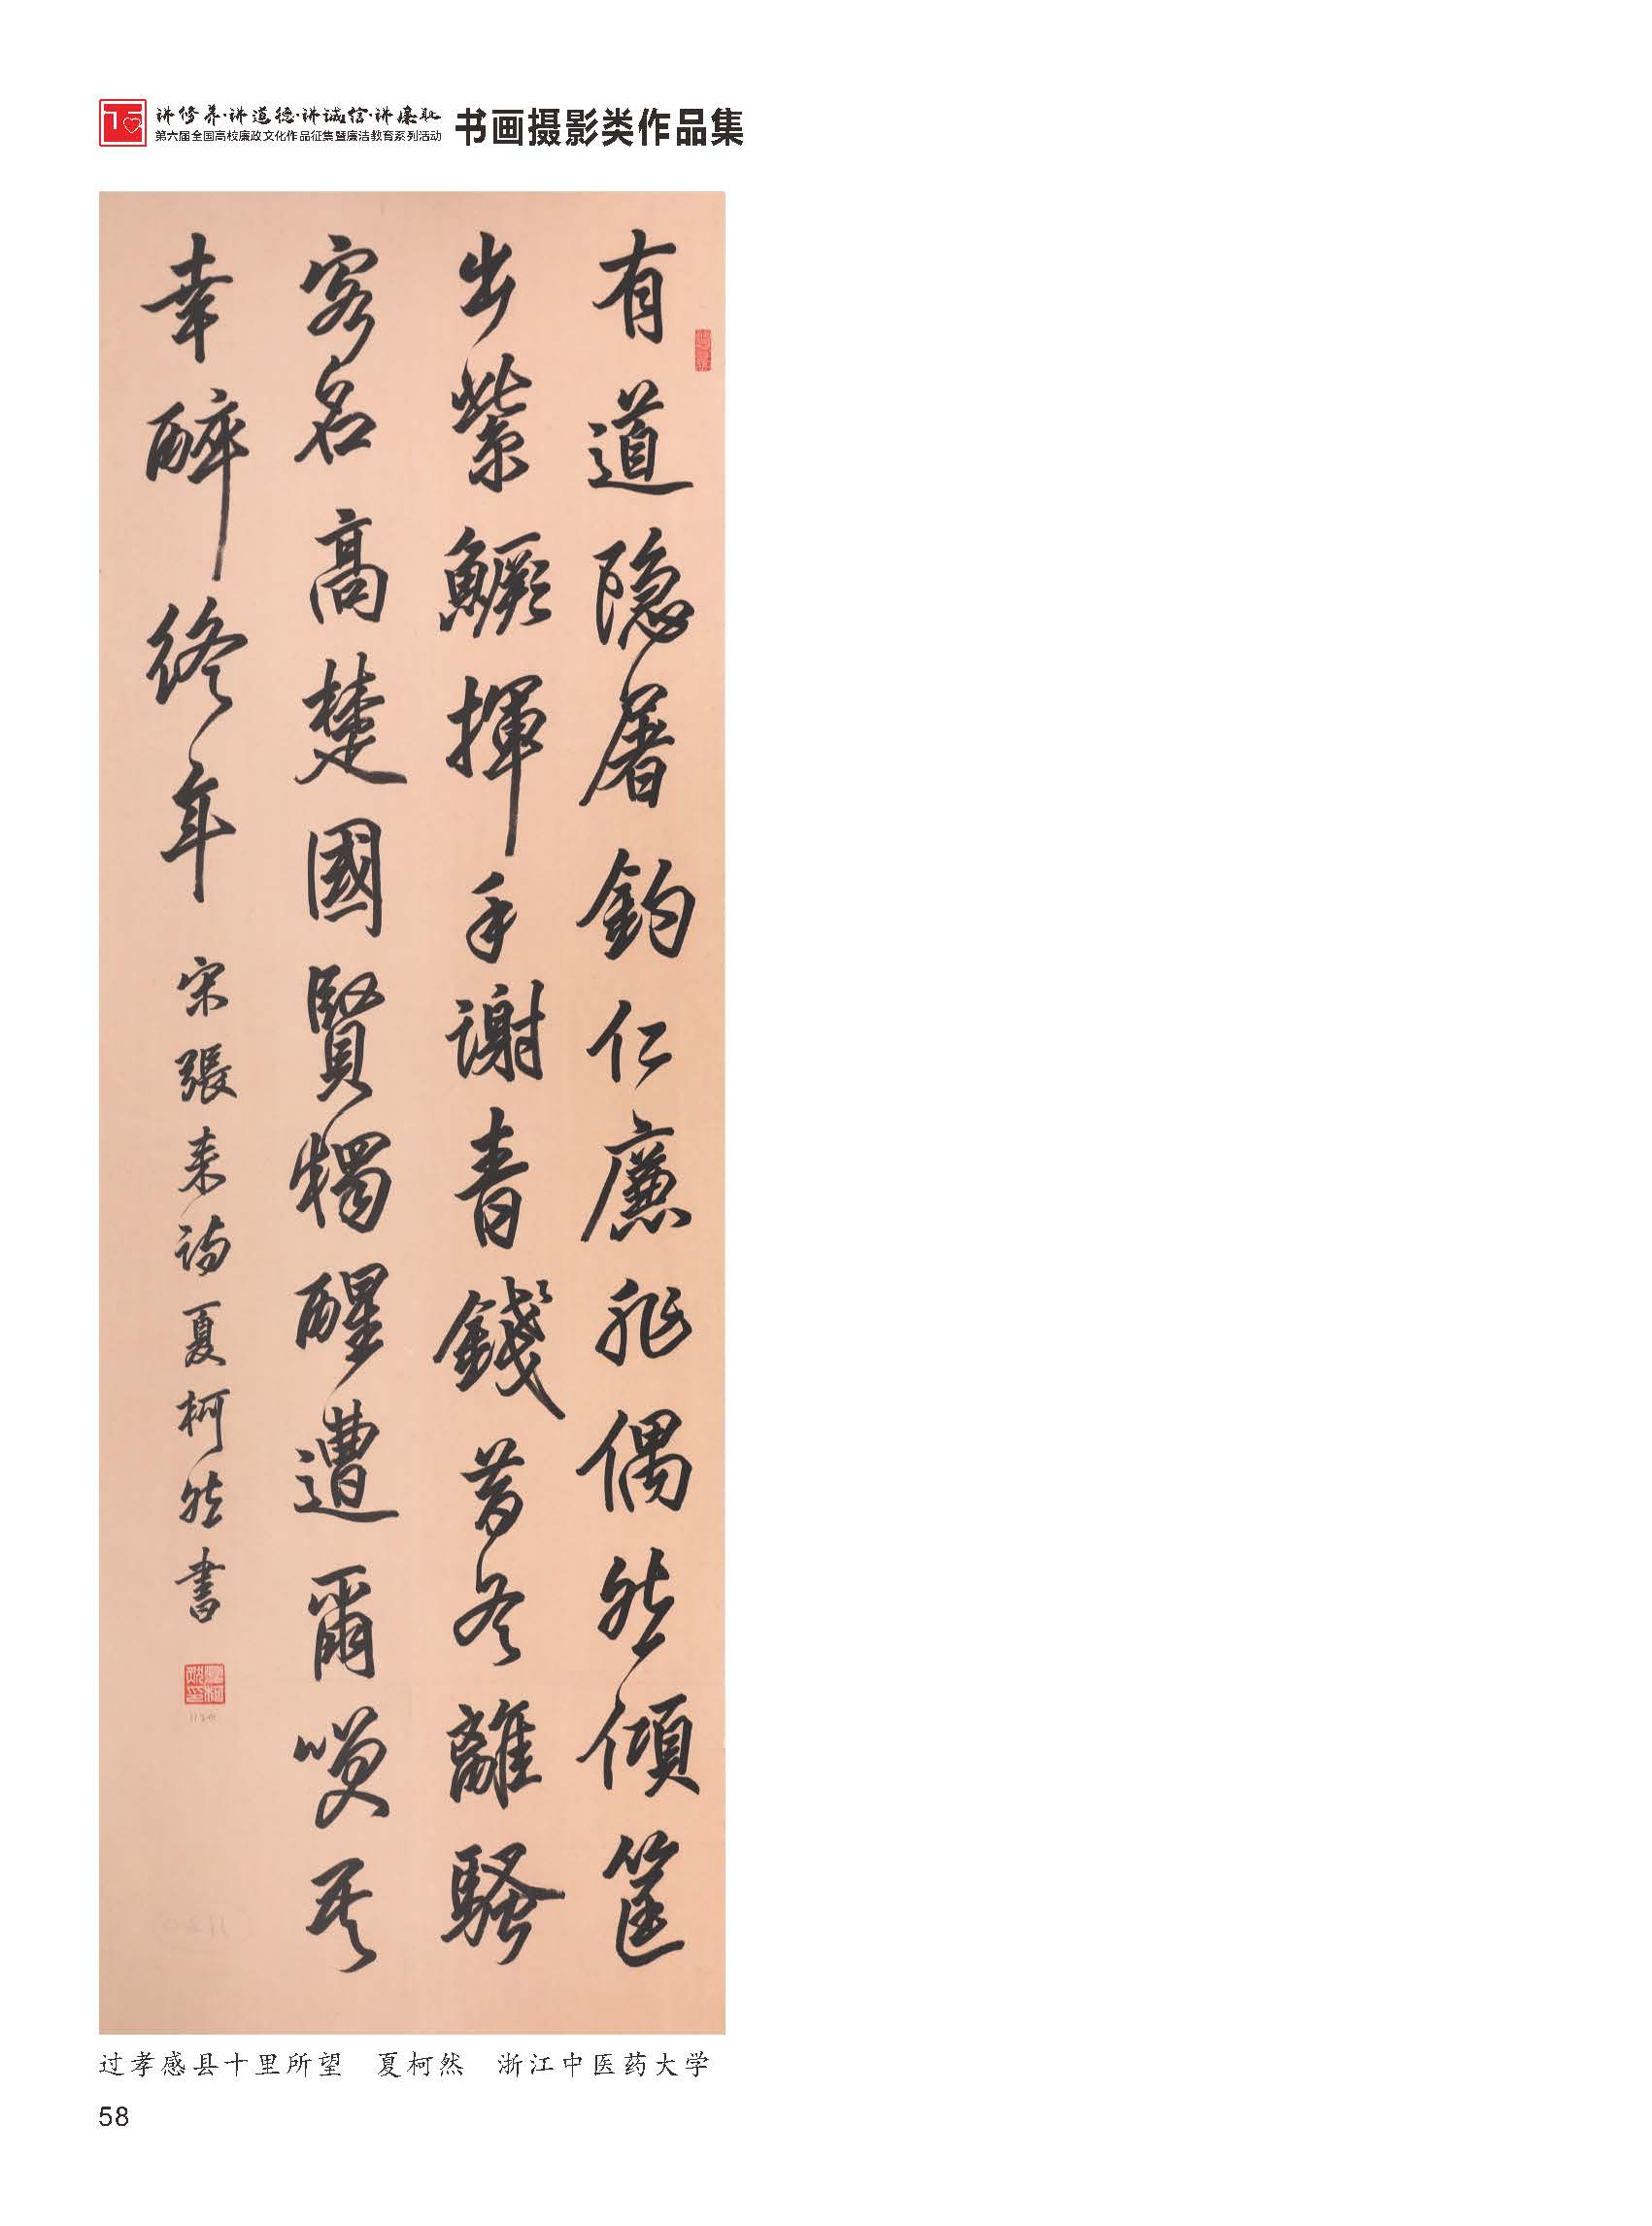 讲修养·讲道德·讲诚信·讲廉耻
第六届全国高校廉政文化作品征集暨廉洁教育系列活动
书画摄影类作品集
有道隐屠钓仁廉非偶然倾筐
出紫鳜揮手谢青錢昔参離騷
客名高楚國賢獨醒遭爾嘆不
幸醉终年 宋張耒诗夏柯然書
过孝感县十里所望 夏柯然 浙江中医药大学
58